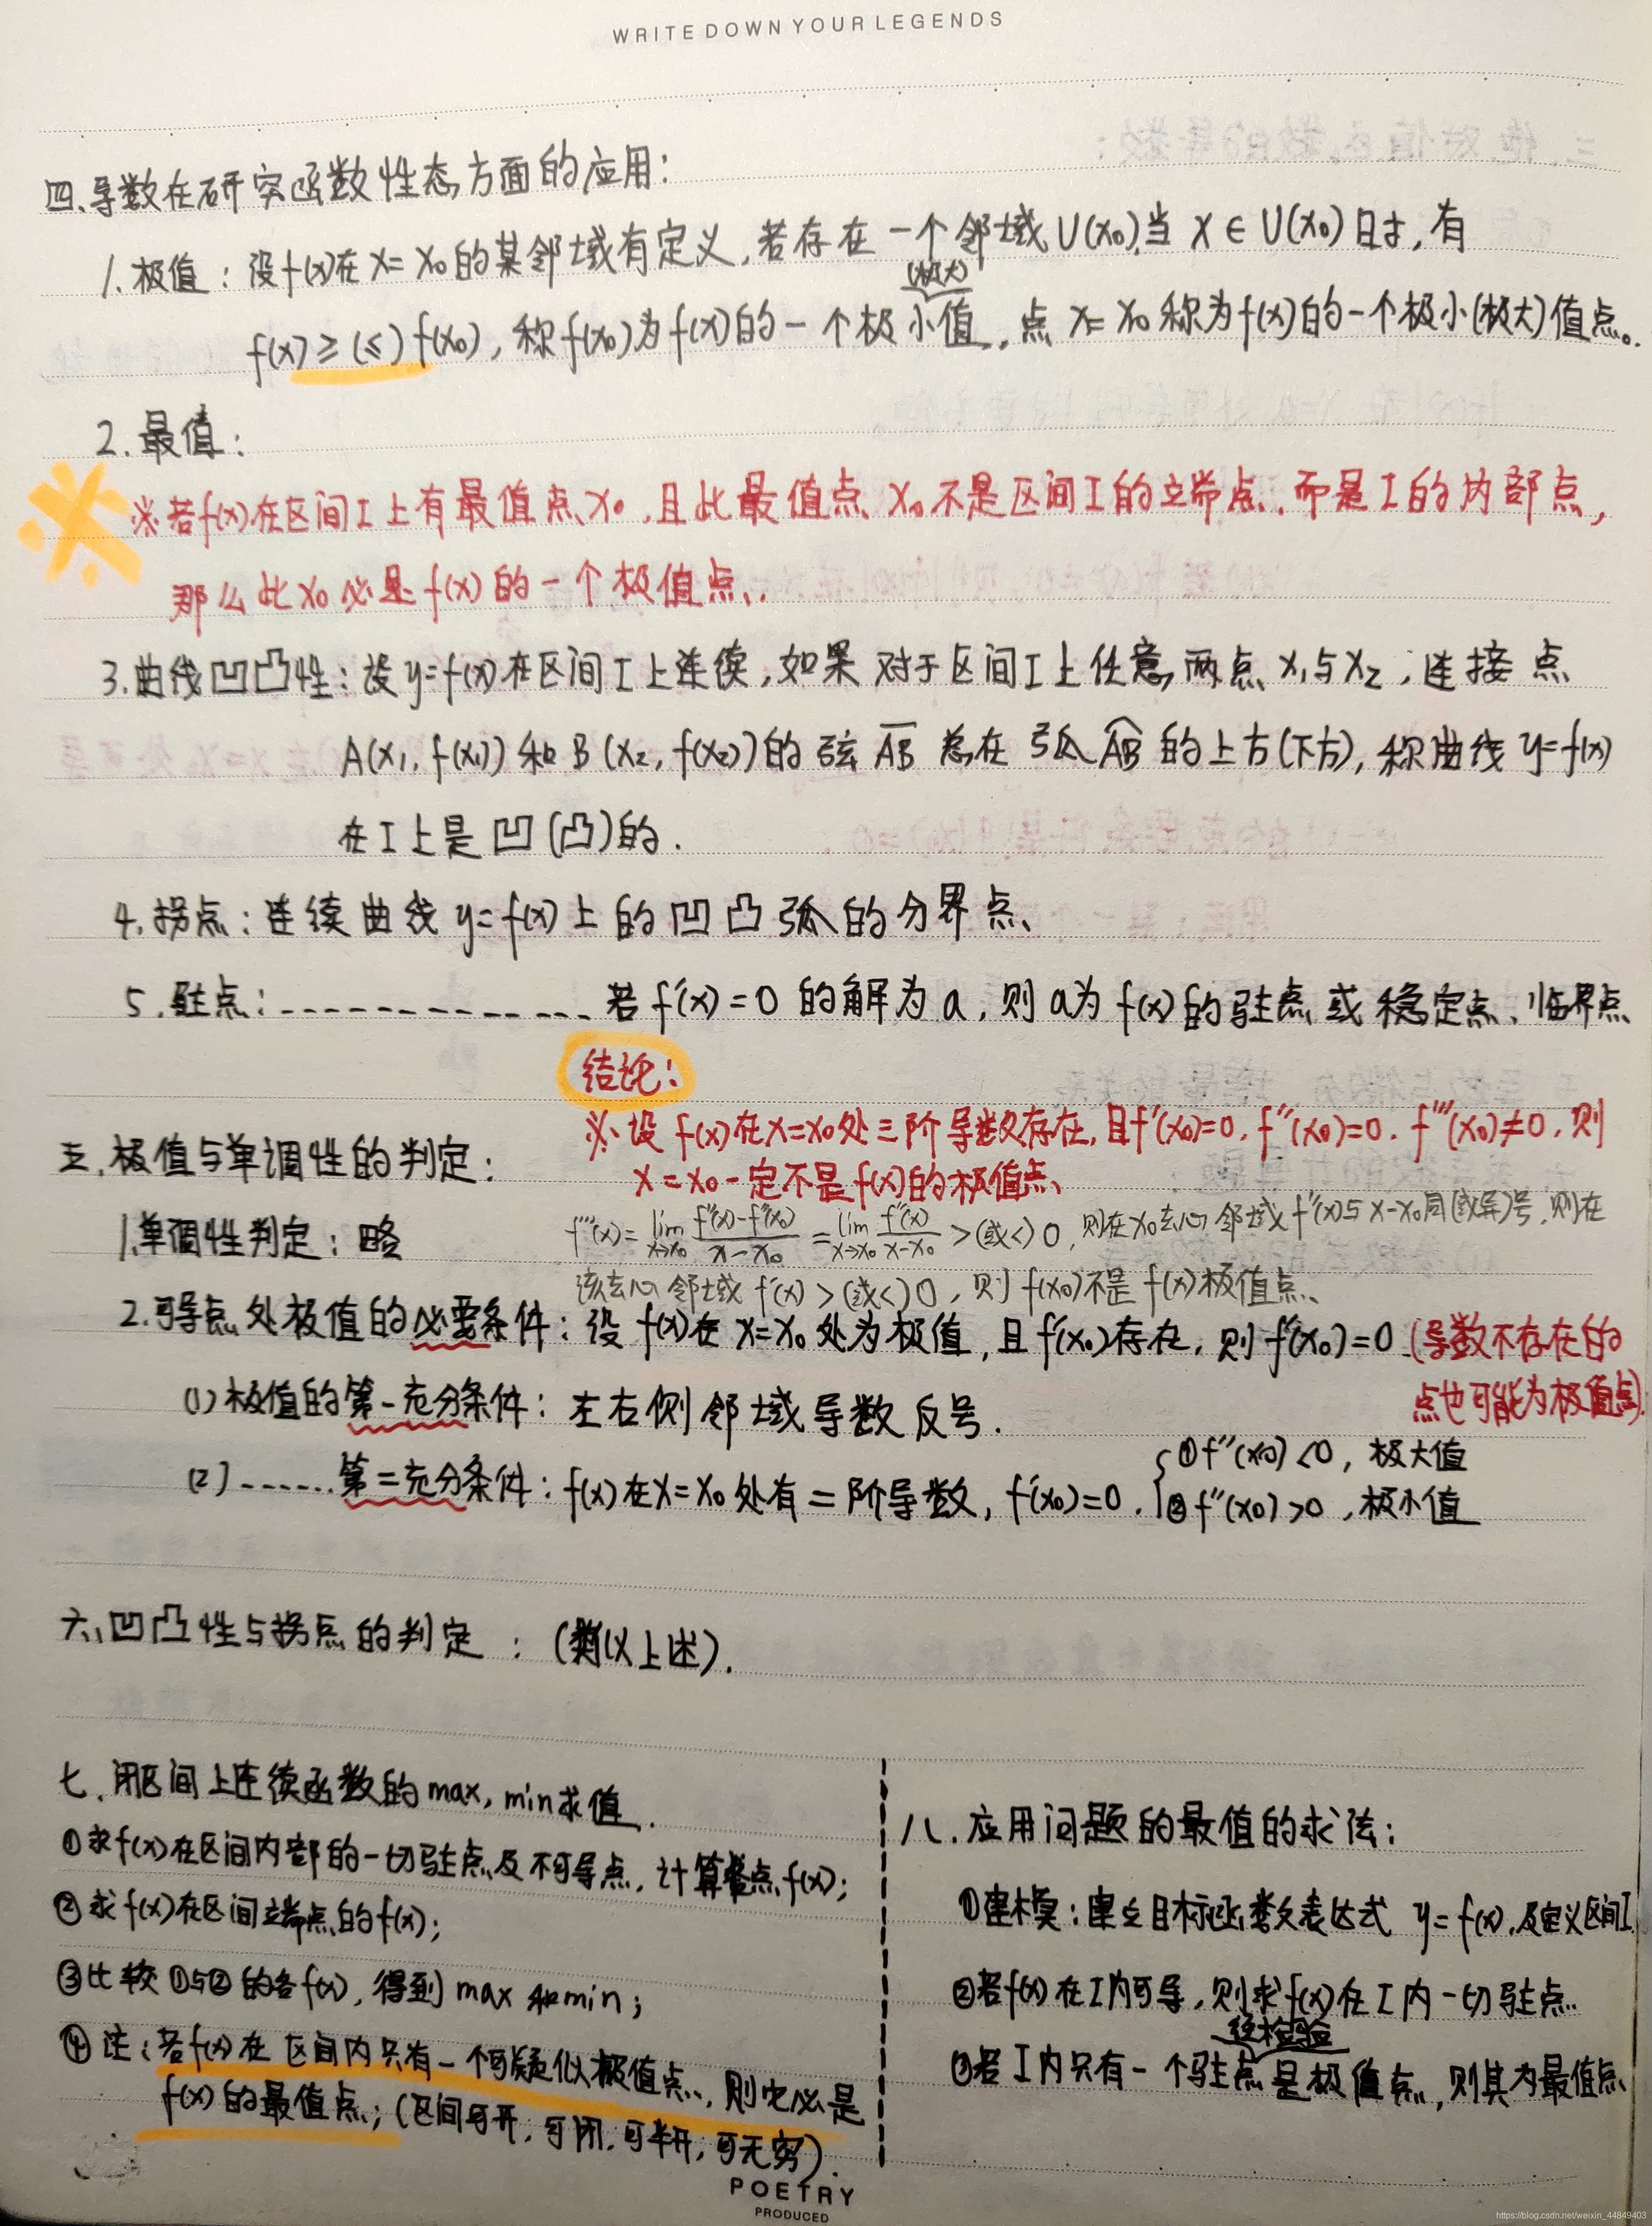 WRITE DOWN YOUR LEGENDS
四.导数在研究函数性态方面的应用:
1.极值:设f(x)在x=x₀的某邻域有定义,若存在一个邻域U(x₀),当x∈U(x₀)时,有
(极大)
f(x)≥(≤)f(x₀),称f(x₀)为f(x)的一个极小值,点x=x₀称为f(x)的一个极小(极大)值点。
2.最值:
※若f(x)在区间I上有最值点x₀,且此最值点x₀不是区间I的端点,而是I的内部点,
那么此x₀必是f(x)的一个极值点.
3.曲线凹凸性:设y=f(x)在区间I上连续,如果对于区间I上任意两点x₁与x₂,连接点
A(x₁,f(x₁))和B(x₂,f(x₂))的弦A̅B̅总在弧A͡B的上方(下方),称曲线y=f(x)
在I上是凹(凸)的.
4.拐点:连续曲线y=f(x)上的凹凸弧的分界点
5.驻点:--------------若f'(x)=0的解为a,则a为f(x)的驻点或稳定点、临界点
结论:
※设f(x)在x=x₀处三阶导数存在,且f'(x₀)=0,f''(x₀)=0,f'''(x₀)≠0,则
x=x₀一定不是f(x)的极值点
五.极值与单调性的判定:
1.单调性判定:略
f'''(x)=lim x→x₀ (f''(x)-f''(x₀))/(x-x₀)=lim x→x₀ f''(x)/(x-x₀)>(或<)0,则在x₀去心邻域f''(x)与x-x₀同(或异)号,则在
该去心邻域f'(x)>(或<)0,则f(x₀)不是f(x)极值点
2.可导点处极值的必要条件:设f(x)在x=x₀处为极值,且f'(x₀)存在,则f'(x₀)=0.(导数不存在的
点也可能为极值点).
(1)极值的第一充分条件:左右侧邻域导数反号.
(2)......第二充分条件:f(x)在x=x₀处有二阶导数,f'(x₀)=0.{①f''(x₀)<0,极大值
②f''(x₀)>0,极小值
六.凹凸性与拐点的判定:(类似上述).
七.闭区间上连续函数的max,min求值.
①求f(x)在区间内部的一切驻点及不可导点,计算点f(x);
②求f(x)在区间端点的f(x);
③比较①与②的各f(x),得到max和min;
④注:若f(x)在区间内只有一个可疑似极值点,则它必是
f(x)的最值点;(区间可开,可闭,可半开,可无穷).
八.应用问题的最值的求法:
①建模:建立目标函数表达式y=f(x),及定义区间I
②若f(x)在I内可导,则求f(x)在I内一切驻点.
经检验
③若I内只有一个驻点是极值点,则其为最值点
POETRY
PRODUCED
https://blog.csdn.net/weixin_44849403